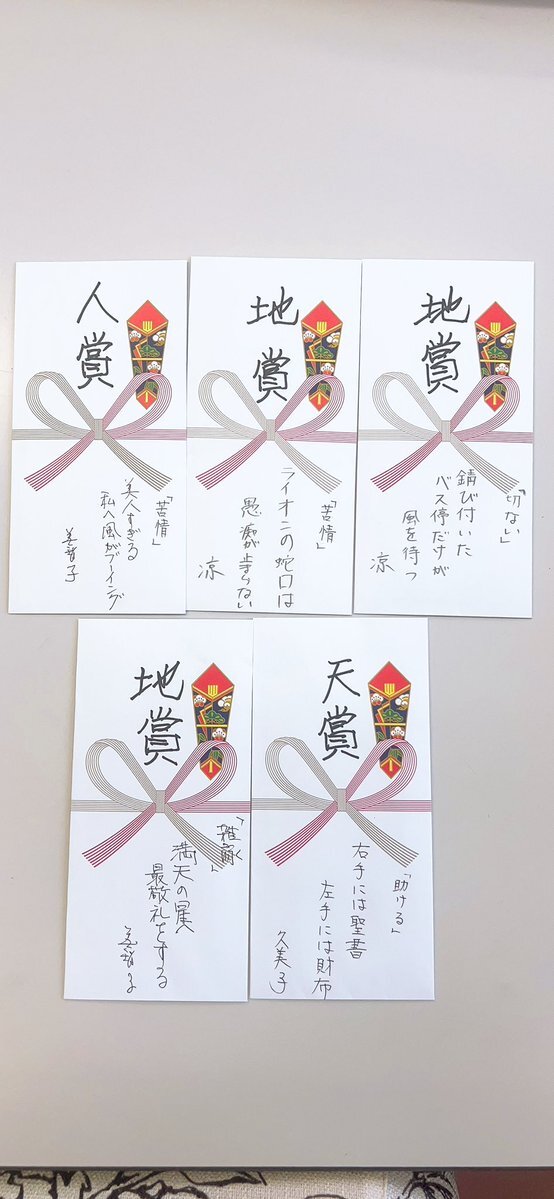 地賞
「切ない」
錆び付いた
バス停だけが
風を待つ
涼
地賞
「苦情」
ライオンの蛇口は
愚痴が止まらない
涼
人賞
「苦情」
美人すぎる
私へ風がブーイング
天賞
「助ける」
右手には聖書
左手には財布
久美子
地賞
満天の星へ
最敬礼をする